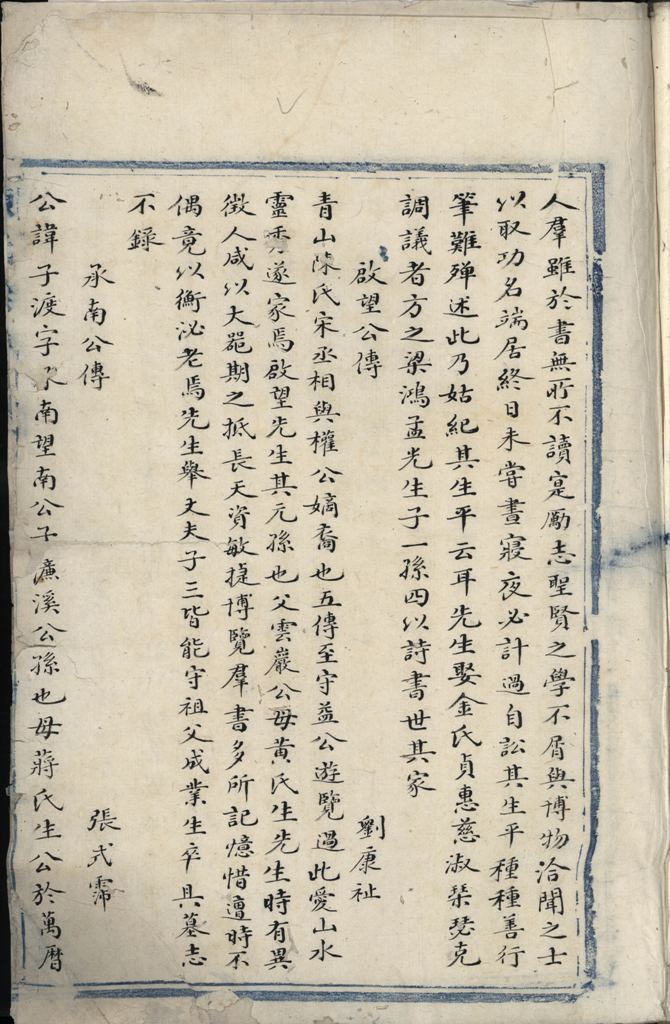 人羣雖於書無所不讀寔勵志聖賢之學不屑與博物洽聞之士
以取功名端居終日未嘗晝寢夜必計過自訟其生平種種善行
筆難殫述此乃姑紀其生平云耳先生娶金氏貞惠慈淑琹瑟克
調議者方之梁鴻孟光生子一孫四以詩書世其家
啟望公傳 劉康祉
青山陳氏宋丞相與權公嫡裔也五傳至守益公遊覽過此愛山水
靈秀遂家焉啟望先生其元孫也父雲巖公母黃氏生先生時有異
徵人咸以大器期之抵長天資敏捷博覽羣書多所記憶惜遭時不
偶竟以衡泌老焉先生舉丈夫子三皆能守祖父成業生卒具墓志
不錄
承南公傳 張式霈
公諱子渡字承南望南公子濂溪公孫也母蔣氏生公於萬曆